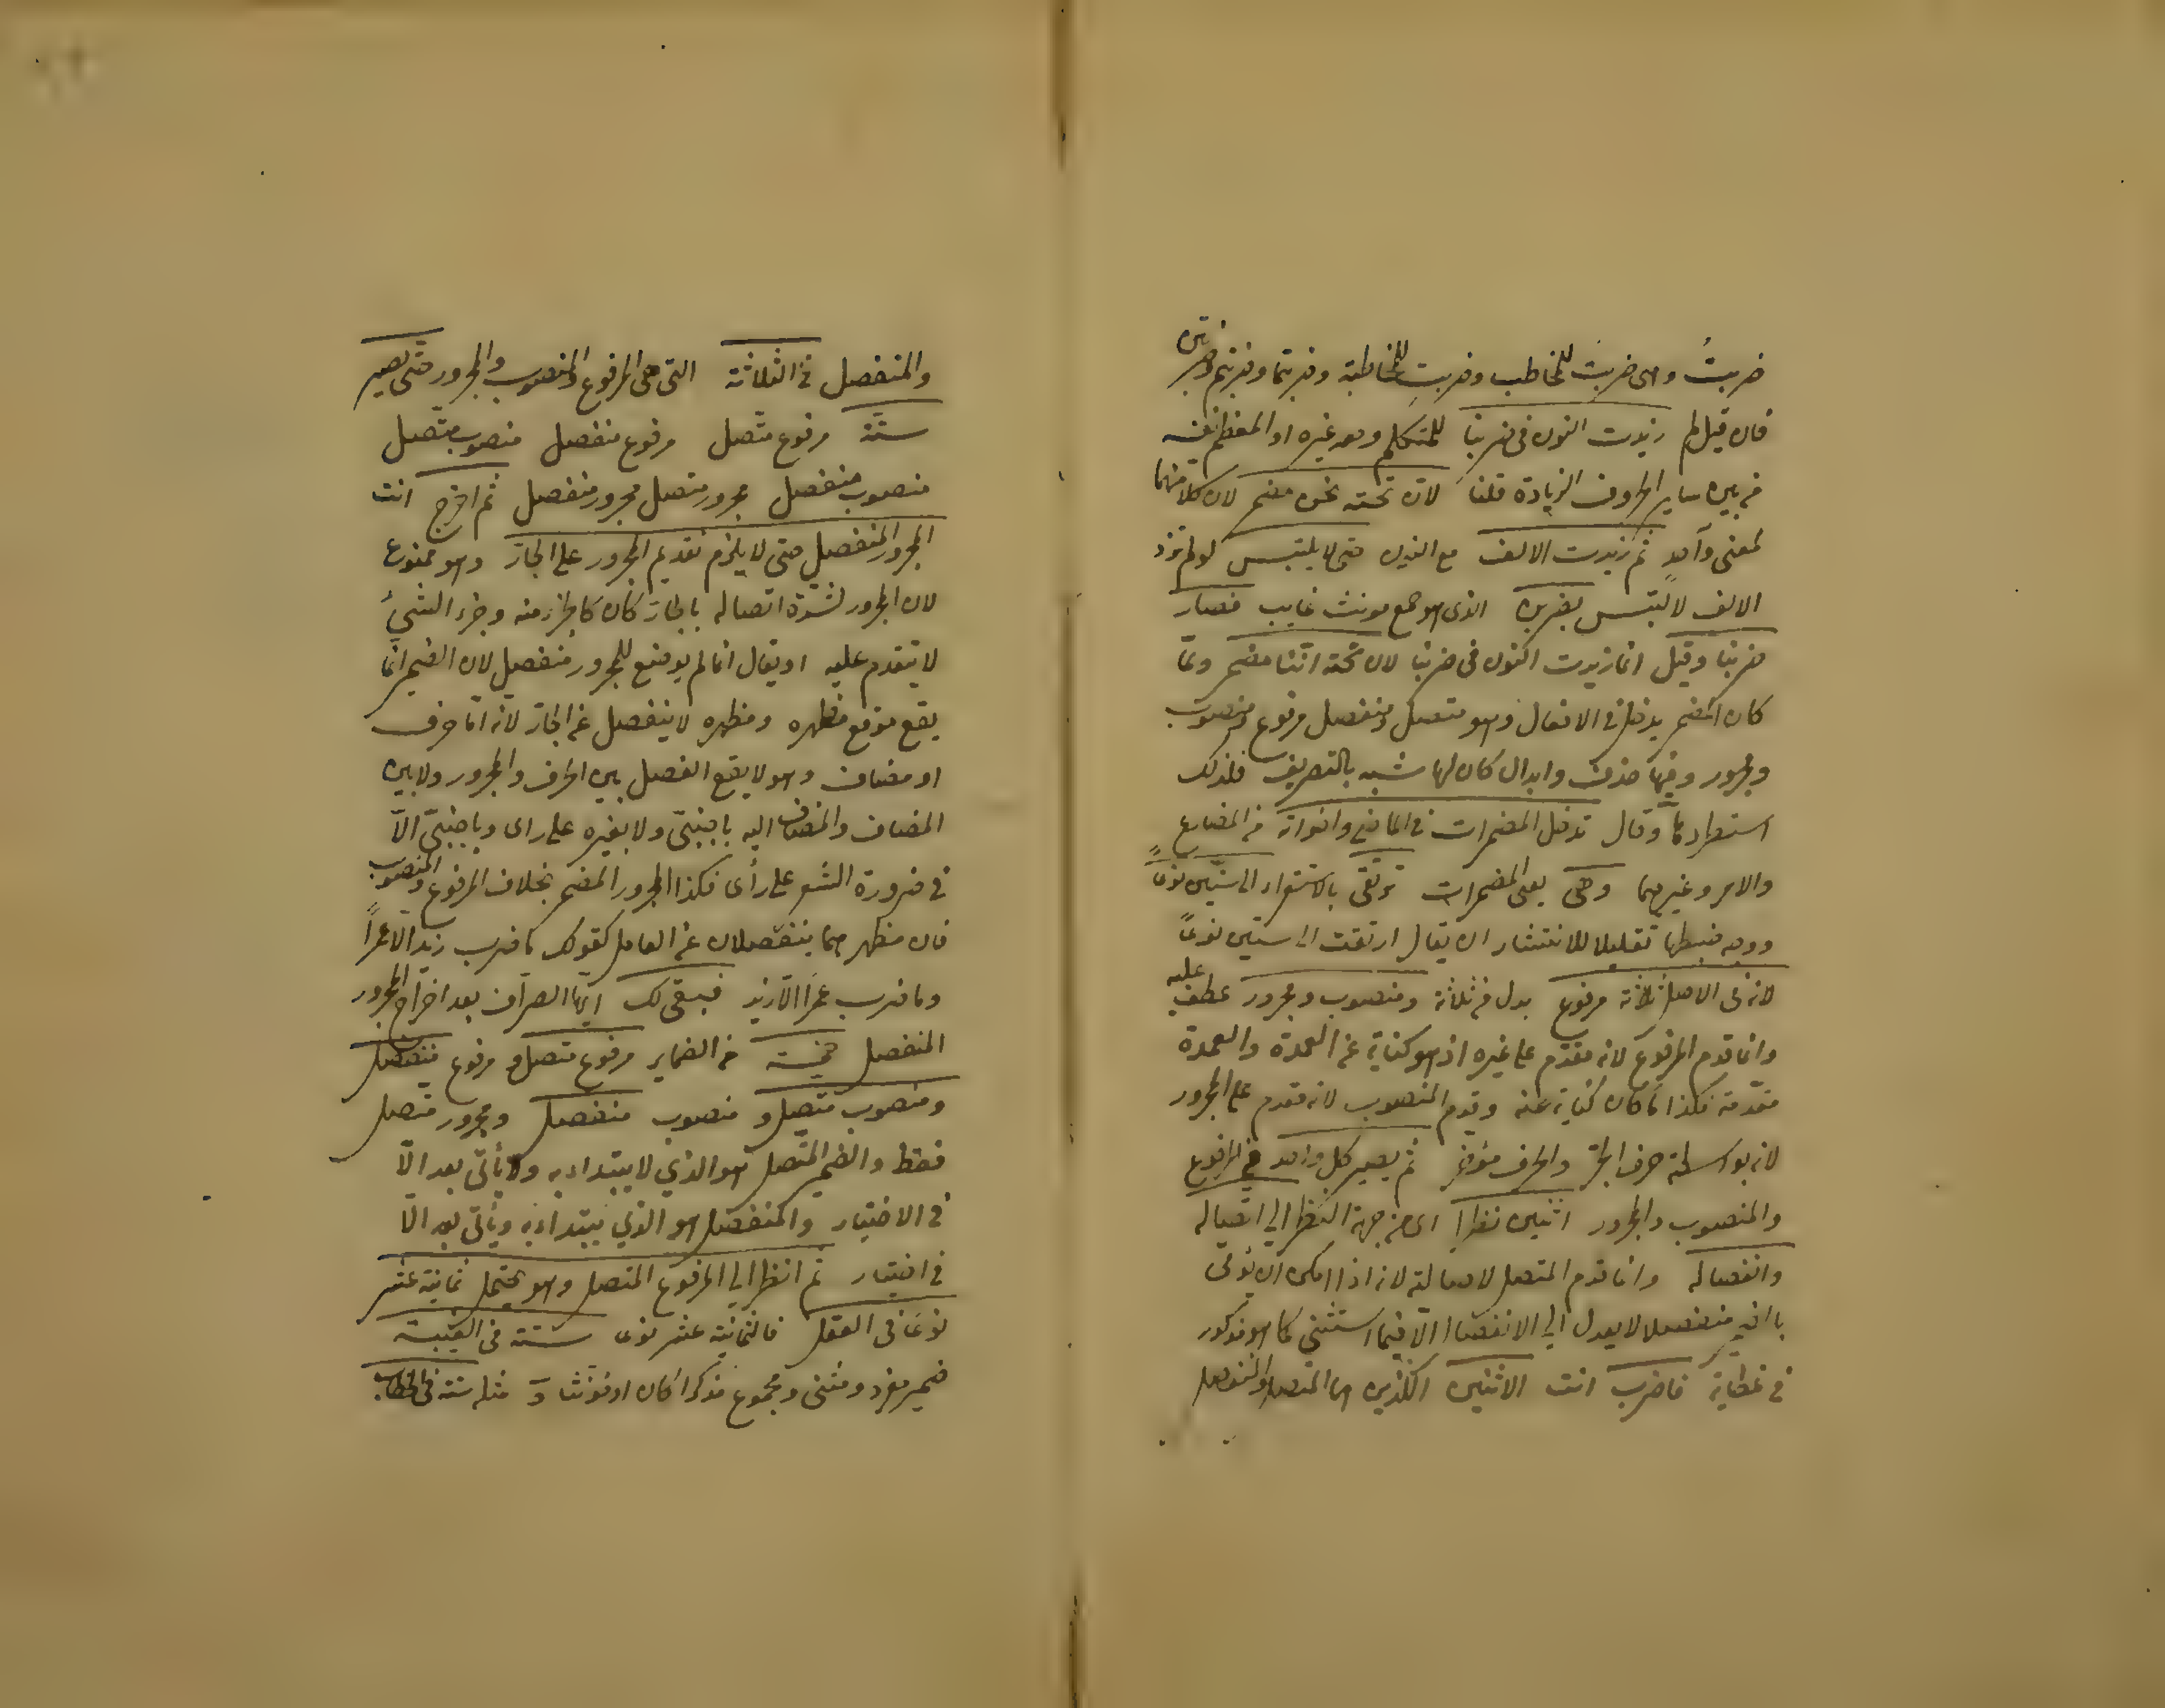 ضربتُ وهى ضربتَ للمخاطب وضربتِ للمخاطبة وضربتما وضربتم وضربتن
فان قيل لم زيدت النون فى ضربنا للمتكلم ومعه غيره او المعظم نفسه
من بين ساير الحروف الزيادة قلنا لان تحته نحن مضمر لان كلا منهما
لمعنى واحد ثم زيدت الالف مع النون حتى لا يلتبس لو لم تزد
الالف لالتبس بضربن الذى هو جمع مونث غايب فصار
ضربنا وقيل انما زيدت النون فى ضربنا لان تحته اننا مضمر ولما
كان المضمر يدخل فى الافعال وهو متصل ومنفصل مرفوع ومنصوب
ومجرور وفيها حذف وابدال كان لها شبه بالتصريف فلذلك
استطرادها وقال تدخل المضمرات فى الماضى واخواته من المضارع
والامر وغيرهما وهى يعنى المضمرات ترتقى بالاستقراء الى ستين نوعاً
ووجه ضبطها تقليلا للانتشار ان يقال ارتقت الى ستين نوعاً
لانه فى الاصل ثلاثة مرفوع بدل من ثلاثة ومنصوب ومجرور عطف عليه
وانما قدم المرفوع لانه مقدم على غيره اذ هو كناية عن العمدة والعمدة
مقدمة فكذا ما كان كناية عنه وقدم المنصوب لانه مقدم على المجرور
لانه بواسطة حرف الجر والحرف مؤخر ثم يصير كل واحد من المرفوع
والمنصوب والمجرور اثنين نظرا اى من جهة النظر الى اتصاله
وانفصاله وانما قدم المتصل لاصالته لانه اذا امكن ان يؤتى
منفصلا لا يعدل الى الانفصال الا فيما استثنى كما هو مذكور
فى فاضرب انت الاثنين اللذين هما المتصل والمنفصل
والمنفصل فى الثلاثة التى هى المرفوع والمنصوب والمجرور حتى يصير
ستة مرفوع متصل مرفوع منفصل منصوب متصل
منصوب منفصل مجرور متصل مجرور منفصل ثم اخرج انت
المجرور المنفصل حتى لا يلزم تقديم المجرور على الجار وهو ممنوع
لان المجرور لشدة اتصاله بالجار كان كالجزء منه وجزء الشئ
لا يتقدم عليه او يقال انما لم يوضع للمجرور منفصل لان الضمير انما
يقع موقع مظهره ومظهره لا ينفصل عن الجار لانه اما حرف
او مضاف وهو لا يقع الفصل بين الحرف والمجرور ولا بين
المضاف والمضاف اليه باجنبىّ ولا بغيره على راى وباجنبىّ الّا
فى ضرورة الشعر على رأى فكذا المجرور المضمر بخلاف المرفوع والمنصوب
فان مظهرهما ينفصلان عن العامل كقولك ما ضرب زيد الا عمراً
وما ضرب عمرا الا زيد فبقى لك ايها الصراف بعد اخراج المجرور
المنفصل خمسة من الضماير مرفوع متصل و مرفوع منفصل
ومنصوب متصل و منصوب منفصل ومجرور متصل
فقط والضمير المتصل هو الذي لا يبتداء به ولا يأتى بعد الّا
فى الاختيار والمنفصل هو الذي يبتداء به ويأتى بعد الّا
فى اختيار ثم انظر الى المرفوع المتصل وهو يحتمل ثمانية عشر
نوعا فى العقل فالثمانية عشر نوعا ستة فى الغيبة
ضمير مفرد ومثنى ومجموع مذكرا كان او مؤنثا و مثله ستة فى الخطاب